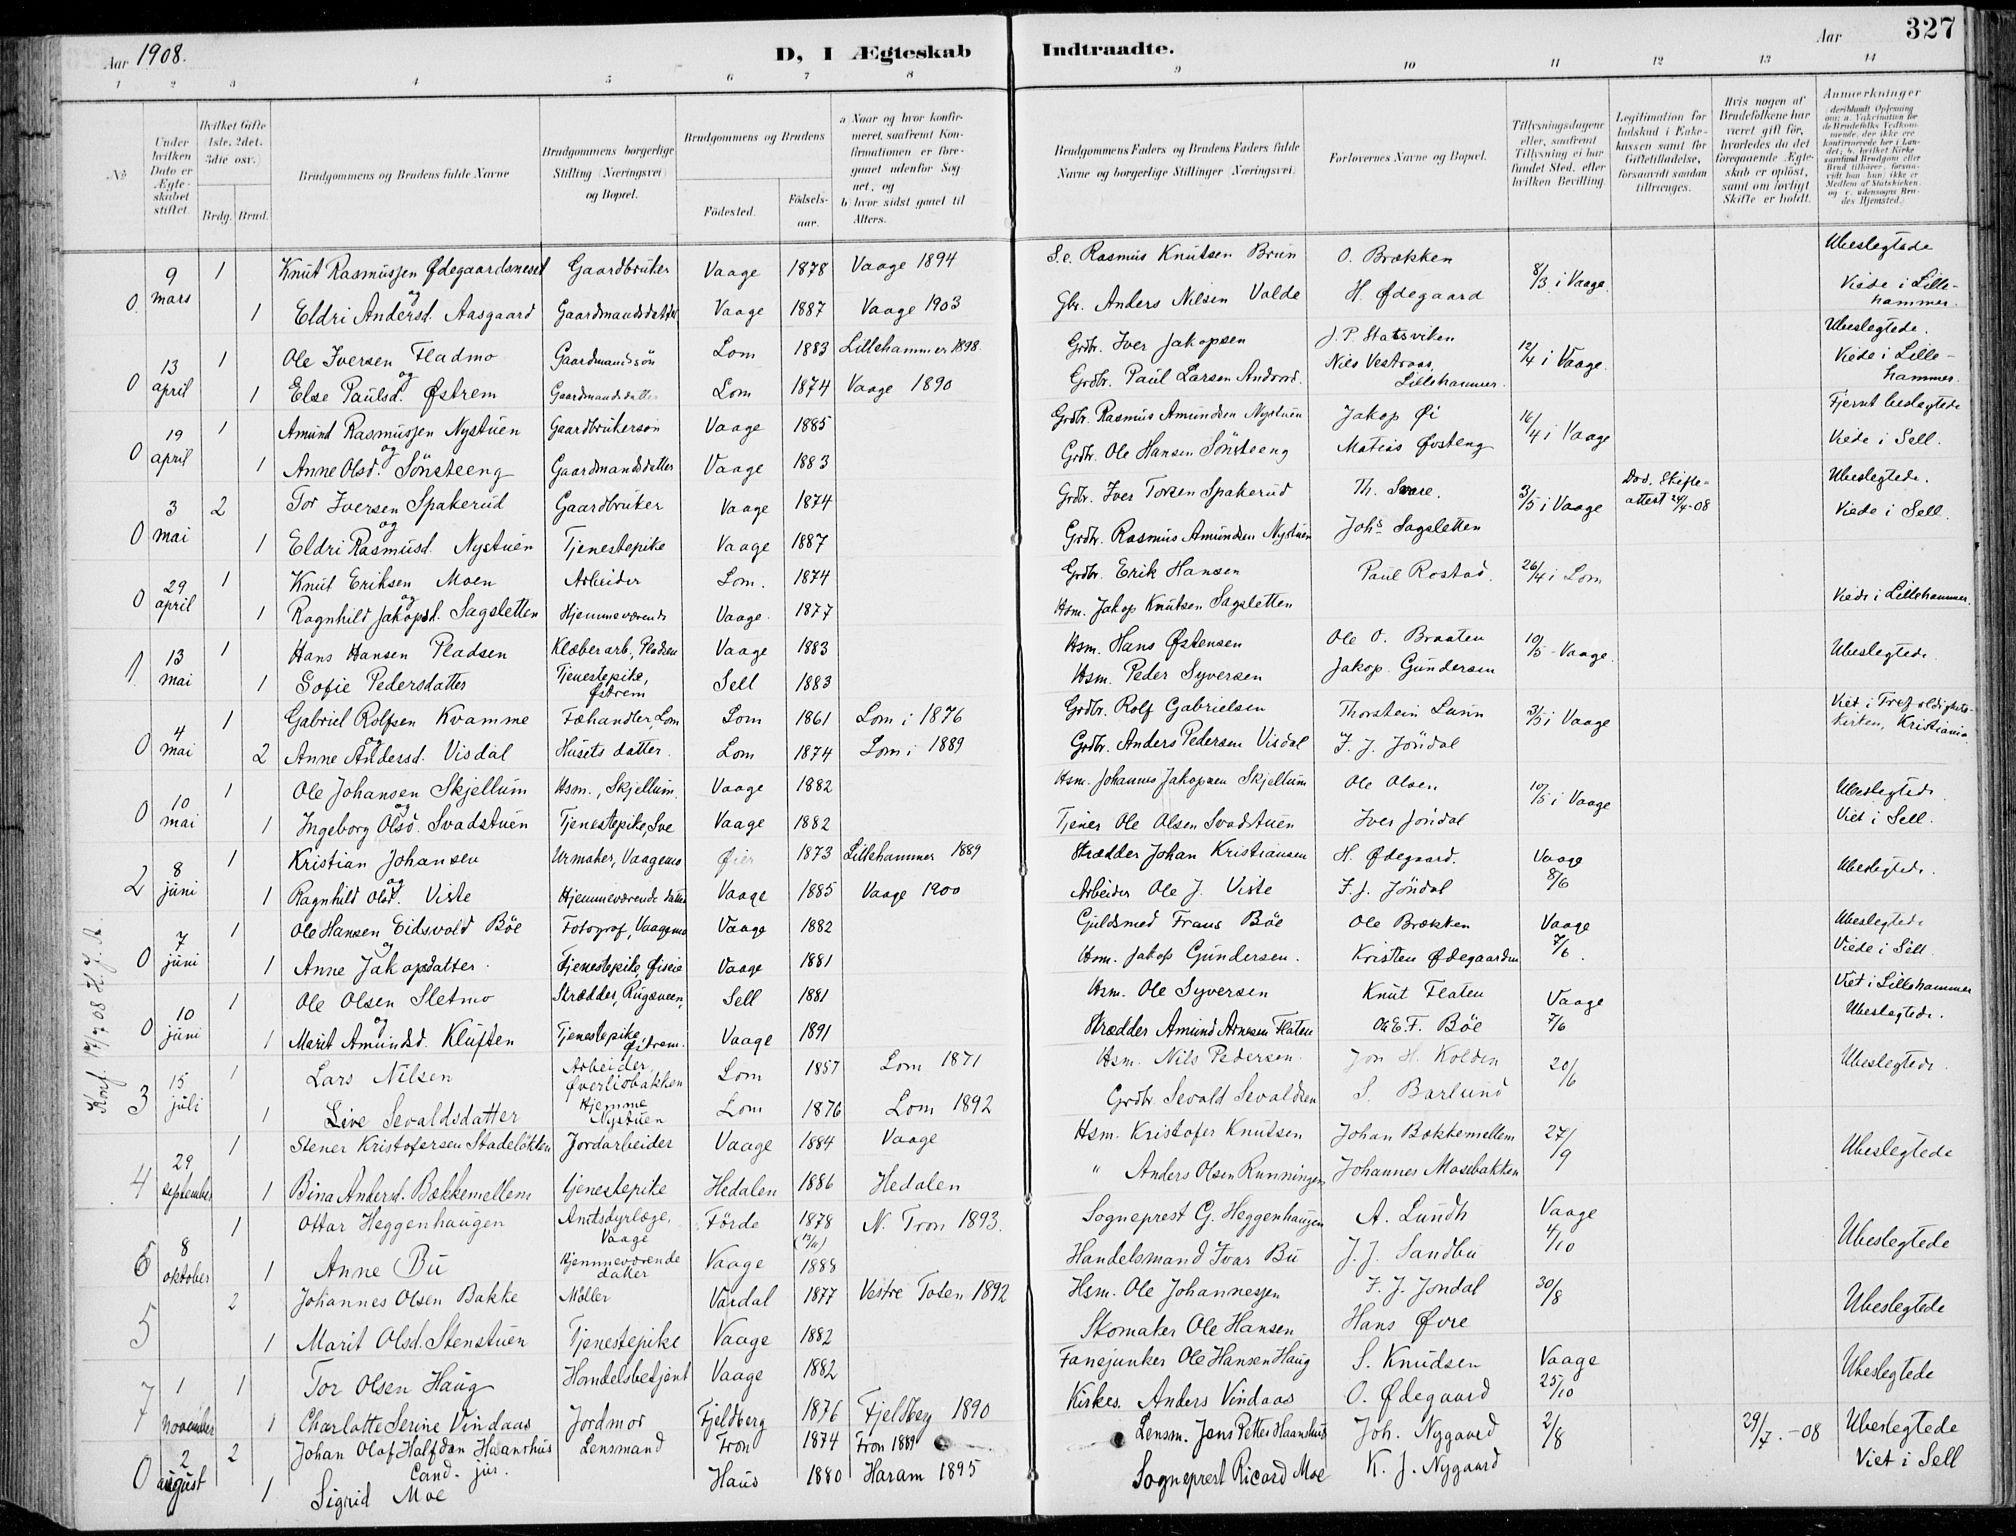 Aar 1908. D, I Ægteskab Indtraadte. Aar 327
1 2 3 4 5 6 7 8 9 10 11 12 13 14
№
Under hvilken Dato er Ægteskabet stiftet
Hvilket Gifte (1ste, 2det, 3die osv.)
Brdg. Brud.
Brudgommens og Brudens fulde Navne
Brudgommens borgerlige Stilling (Næringsvei) og Bopæl.
Brudgommens og Brudens
Fødested. Fødselsaar.
a Naar og hvor konfirmeret, saafremt Konfirmationen er foregaaet udenfor Sognet, og
b hvor sidst gaaet til Alters.
Brudgommens Faders og Brudens Faders fulde Navne og borgerlige Stillinger (Næringsvei).
Forlovernes Navne og Bopæl.
Tillysningsdagene eller, saafremt Tillysning ei har fundet Sted, efter hvilken Bevilling.
Legitimation for Indskud i Enkekassen samt for Giftetilladelse, forsaavidt saadan tiltrænges.
Hvis nogen af Brudefolkene har været gift før, hvorledes da det foregaaende Ægteskab er opløst, samt om lovligt Skifte er holdt.
Anmærkninger
0 9 mars 1 Knut Rasmussen Ødegaardsneset Gaardbruker Vaage 1878 Vaage 1894 S.e. Rasmus Knutsen Brun O. Brækken 8/3 i Vaage. Ubeslegtede
og
1 Eldri Andersd. Aasgaard Gaardmandsdatter Vaage 1887 Vaage 1903 Gbr. Anders Nilsen Valde H. Ødegaard Viede i Lillehammer.
0 13 april 1 Ole Iversen Fladmo Gaardmandssøn Lom 1883 Lillehammer 1898. Grdbr. Iver Jakopsen J. P. Statsviken 12/4 i Vaage. Ubeslegtede.
og
1 Else Paulsd. Østrem Gaardmandsdatter Lom 1874 Vaage 1890 Grdbr. Paul Larsen Andvod. Nils Vestraas, Lillehammer. Viede i Lillehammer.
0 19 april 1 Amund Rasmussen Nystuen Gaardbrukersøn Vaage 1885 Grdbr. Rasmus Amundsen Nystuen Jakop Øi 16/4 i Vaage Fjernt beslegtede
og
1 Anne Olsd. Sønsteeng Gaardmandsdatter Vaage 1883 Grdbr. Ole Hansen Sønsteeng Matias Øvsteng Viede i Sell.
0 3 mai 2 Tor Iversen Spakerud Gaardbruker Vaage 1874 Grdbr. Iver Torsen Spakerud Th. Svare. 3/5 i Vaage Død. Skifteattest 24/4-08 Ubeslegtede.
og
1 Eldri Rasmusd. Nystuen Tjenestepike Vaage 1887 Grdbr. Rasmus Amundsen Nystuen Johs Sagsletten Viede i Sell.
0 29 april 1 Knut Eriksen Moen Arbeider Lom. 1874 Grdbr. Erik Hansen Paul Rostad. 26/4 i Lom
og
1 Ragnhild Jakopsd. Sagsletten Hjemmeværende Vaage 1877 Hsm. Jakop Knutsen Sagsletten Viede i Lillehammer.
1 13 mai 1 Hans Hansen Pladsen Klæberarb, Pladsen Vaage 1883 Hsm. Hans Østensen Ole O. Braaten 10/5 - Vaage. Ubeslegtede.
1 Sofie Pedersdatter Tjenestepike, Østrem Sell 1883 Hsm. Peder Syversen Jakop Gundersen
0 4 mai 1 Gabriel Rolfsen Kvamme Fæhandler, Lom Lom 1861 Lom i 1876 Grdbr. Rolf Gabrielsen Thorstein Lunn 3/5 i Vaage Viet i Trefoldighetskirken, Kristiania.
og
2 Anne Andersd. Visdal Husets datter. Lom 1874 Lom i 1889 Grdbr. Anders Pedersen Visdal F. J. Jøndal
0 10 mai 1 Ole Johansen Skjellum Hsm., Skjellum. Vaage 1882 Hsm. Johannes Jakopsen Skjellum Ole Olsen 10/5 i Vaage Ubeslegtede.
og
1 Ingeborg Olsd. Svadstuen Tjenestepike, Sve Vaage 1882 Tjener Ole Olsen Svadstuen Iver Jøndal Viet i Sell.
2 8 juni 1 Kristian Johansen Urmaker, Vaagemo Øier 1873 Lillehammer 1889 Skrædder Johan Kristiansen H. Ødegaard. Vaage 8/6 Ubeslegtede.
og
1 Ragnhild Olsd. Viste Hjemmeværende datter Vaage 1885 Vaage 1900 Arbeider Ole J. Viste F. J. Jöndal
0 7 juni 1 Ole Hansen Eidsvold Bøe Fotograf, Vaagemo Vaage 1882 Guldsmed Frans Bøe Ole Brækken Vaage 7/6. Ubeslegtede
og
1 Anne Jakopsdatter. Tjenestepike, Øiseie Vaage 1881 Hsm. Jakop Gundersen. Kristen Ødegaarden Viede i Sell.
0 10 juni 1 Ole Olsen Sletmo Skrædder, Rugsveen, Sell 1881 Hsm. Ole Syversen Knut Flaten Vaage 7/6 Viet i Lillehammer
og
1 Marit Amundsd. Kluften Tjenestepike, Østrem. Vaage 1891 Skrædder Amund Arnesen Flaten Ole F. Bøe Ubeslegtede.
Konf. 17/7 08
3 15 juli 1 Lars Nilsen Arbeider, Øverliobakken Lom 1857 Lom 1871 Hsm. Nils Pedersen. Jon H. Kolden 20/6 Ubeslegtede.
1 Live Sevaldsdatter Hjemme Nystuen Lom 1876 Lom 1892 Grdbr. Sevald Sevaldsen S. Barlund
4 29 september 1 Stener Kristofersen Stadeløkken Jordarbeider Vaage 1884 Vaage Hsm. Kristofer Knutsen Johan Bakkemellem 27/9 Ubeslegtede
1 Bina Andersd. Bækkemellem tjenestepike Hedalen 1886 Hedalen " Anders Olsen Runningen Johannes Mosebakken
6 8 oktober 1 Ottar Heggenhaugen Amtsdyrlæge, Vaage Førde 1878 (13/11) N. Fron 1893. Sogneprest G. Heggenhaugen A. Lundh Vaage 4/10 Ubeslegtede
1 Anne Bu Hjemmeværende datter Vaage 1888 Handelsmand Ivar Bu J. J. Sandbu
5 2 Johannes Olsen Bakke Møller Vardal 1877 Vestre Toten 1892 Hsm. Ole Johannessen F. J. Jondal 30/8 Ubeslegtede
1 Marit Olsd. Stenstuen Tjenestepike Vaage 1882 Skomaker Ole Hansen Hans Øvre
7 1 november 1 Tor Olsen Haug Handelsbetjent Vaage 1882 Fanejunker Ole Hansen Haug S. Knudsen Vaage 25/10 Ubeslegtede
1 Charlotte Serine Vindaas Jordmor Fjeldberg 1876 Fjeldberg 1890 Kirkes. Anders Vindaas O. Ødegaard
0 2 august 2 Johan Olaf Halfdan Haanshus Cand. jur. Lensmand Fron 1874 Fron 1889 Lensm. Jens Petter Haanshus Joh. Nygaard 2/8 29/7. -08 Ubeslegtede
1 Sigrid Moe Haus 1880 Haram 1895 Sogneprest Ricard Moe K. J. Nygaard Viet i Sell